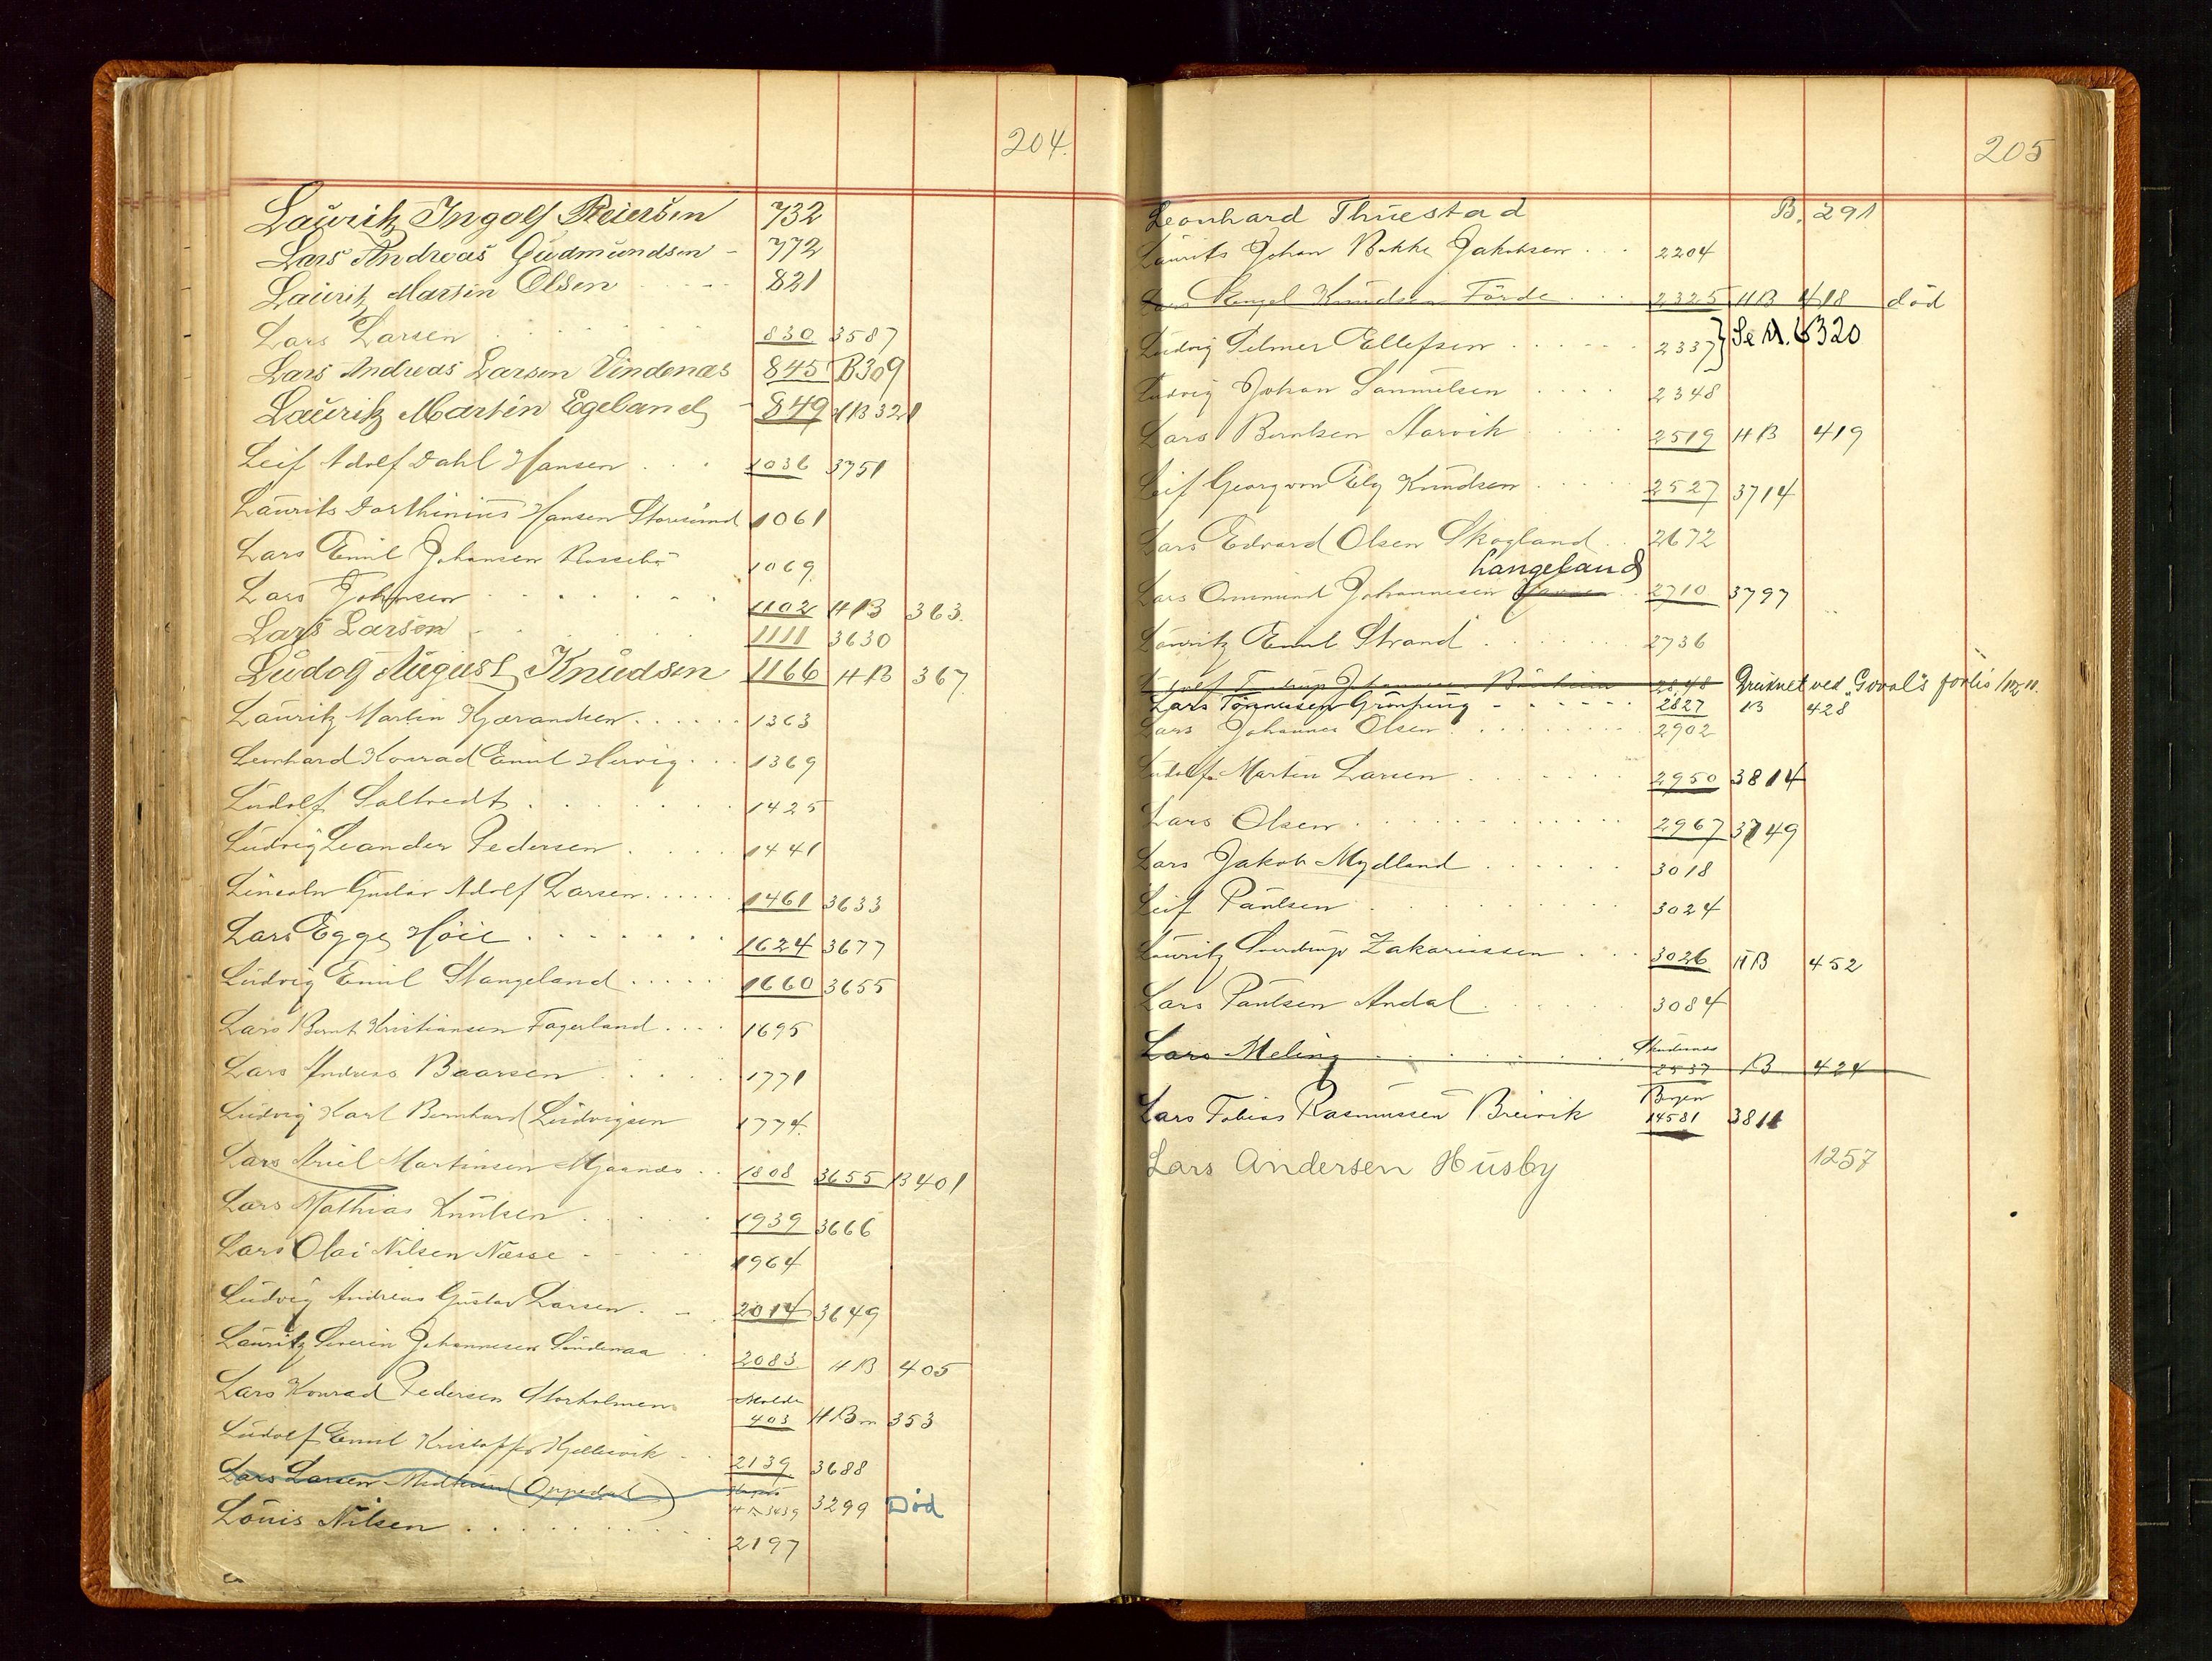 204.
Lauritz Ingolf Reiersen 732
Lars Andreas Gudmundsen - 772
Lauritz Martin Olsen 821
Lars Larsen 830 3587
Lars Andreas Larsen Vindenæs 845 B309
Lauritz Martin Egeland 849 HB 321
Leif Adolf Dahl Hansen 1036 3751
Laurits Dorthinius Hansen Storesund 1061
Lars Emil Johansen Rossebø 1069
Lars Johnsen 1102 HB 363.
Lars Larsen 1111 3630
Ludolf August Knudsen 1166 HB 367.
Lauritz Martin 1363
Leonhard Konrad Emil Hervig 1369
Ludolf Saltvedt 1425
Ludvig Leander Pedersen 1441
Lincoln Gustav Adolf Larsen 1461 3633
Lars Egge Höie 1624 3677
Ludvig Emil Stangeland 1660 3655
Lars Bernt Kristiansen Fagerland 1695
Lars Andreas Baarsen 1771
Ludvig Karl Bernhard Ludvigsen 1774.
Lars Ariel Martinsen 1808 3655 B401
Lars Mathias Knutsen 1939 3666
Lars Olai Nilsen Næsse 1964
Ludvig Andreas Gustav Larsen 2014 3649
Lauritz Severin Johannesen Sundenaa 2083 HB 405
Lars Konrad Pedersen Storholmen Molde 403 HBm 353
Ludolf Emil Kristoffer Kjellesvik 2139 3688
Lars Larsen (Oppedal) 3439 3299 Død
Louis Nilsen 2197
205
Leonhard Thuestad B. 291
Laurits Johan Bakke Jakobsen 2204
Lars Knudsen Förde 2325 HB 418 død
Ludvig Selmer Ellefsen 2337} Se N. 6320
Ludvig Johan Samuelsen 2348
Lars Berntsen Narvik 2519 HB 419
Leif Georg von Ely Knudsen 2527 3714
Lars Edvard Olsen Skogland 2672
Langeland
Lars Ommund Johannesen 2710 3797
Lauritz Emil Strand 2736
2848 Druknet ved "Goval's forlis
Lars Tönnesen Grönning 2827 B 428
Lars Johannes Olsen 2902
Ludolf Martin Larsen 2950 3814
Lars Olsen 2967 3749
Lars Jakob Mydland 3018
Leif Paulsen 3024
Lauritz Sverdrup Zakariassen 3026 HB 452
Lars Paulsen Andal 3084
Lars Meling Skudesnæs 2537 B 424
Lars Tobias Rasmussen Breivik Bergen 14581 3811
Lars Andersen Husby 1257